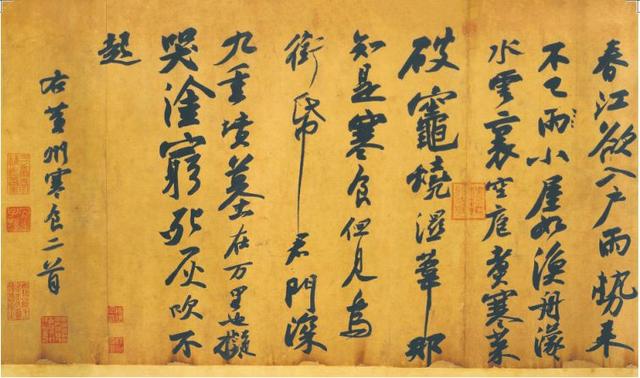 春江欲入户雨勢来
不已雨小屋如漁舟濛
水雲裏空庖煮寒菜
破竈燒濕葦那
知是寒食但見烏
銜帋君門深
九重墳墓在万里也擬
哭塗窮死灰吹不
起
右黃州寒食二首